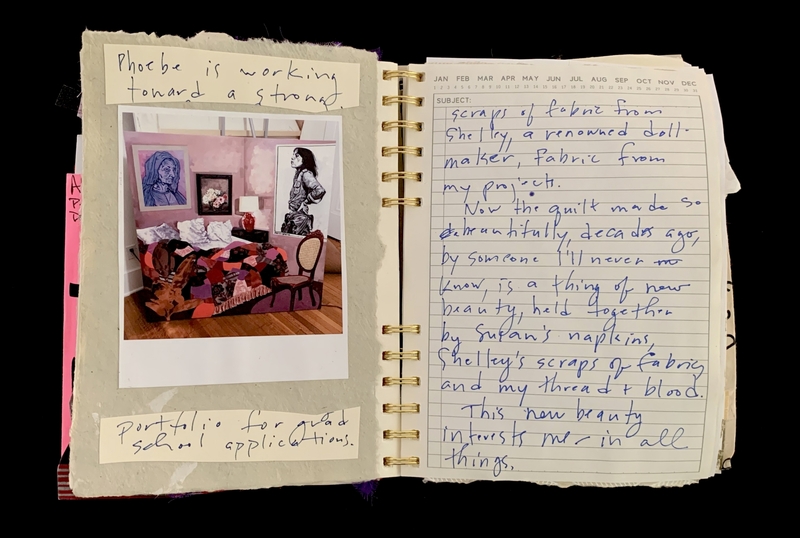 Phoebe is working
toward a strong
Portfolio for grad
school applications.
JAN FEB MAR APR MAY JUN JUL AUG SEP OCT NOV DEC
SUBJECT:
scraps of fabric from
Shelley, a renowned doll-
maker, fabric from
my project.
Now the quilt made so
beautifully, decades ago,
by someone I'll never
know, is a thing of new
beauty, held together
by Susan's napkins,
Shelley's scraps of fabric,
and my thread + blood.
This new beauty
interests me - in all
things.